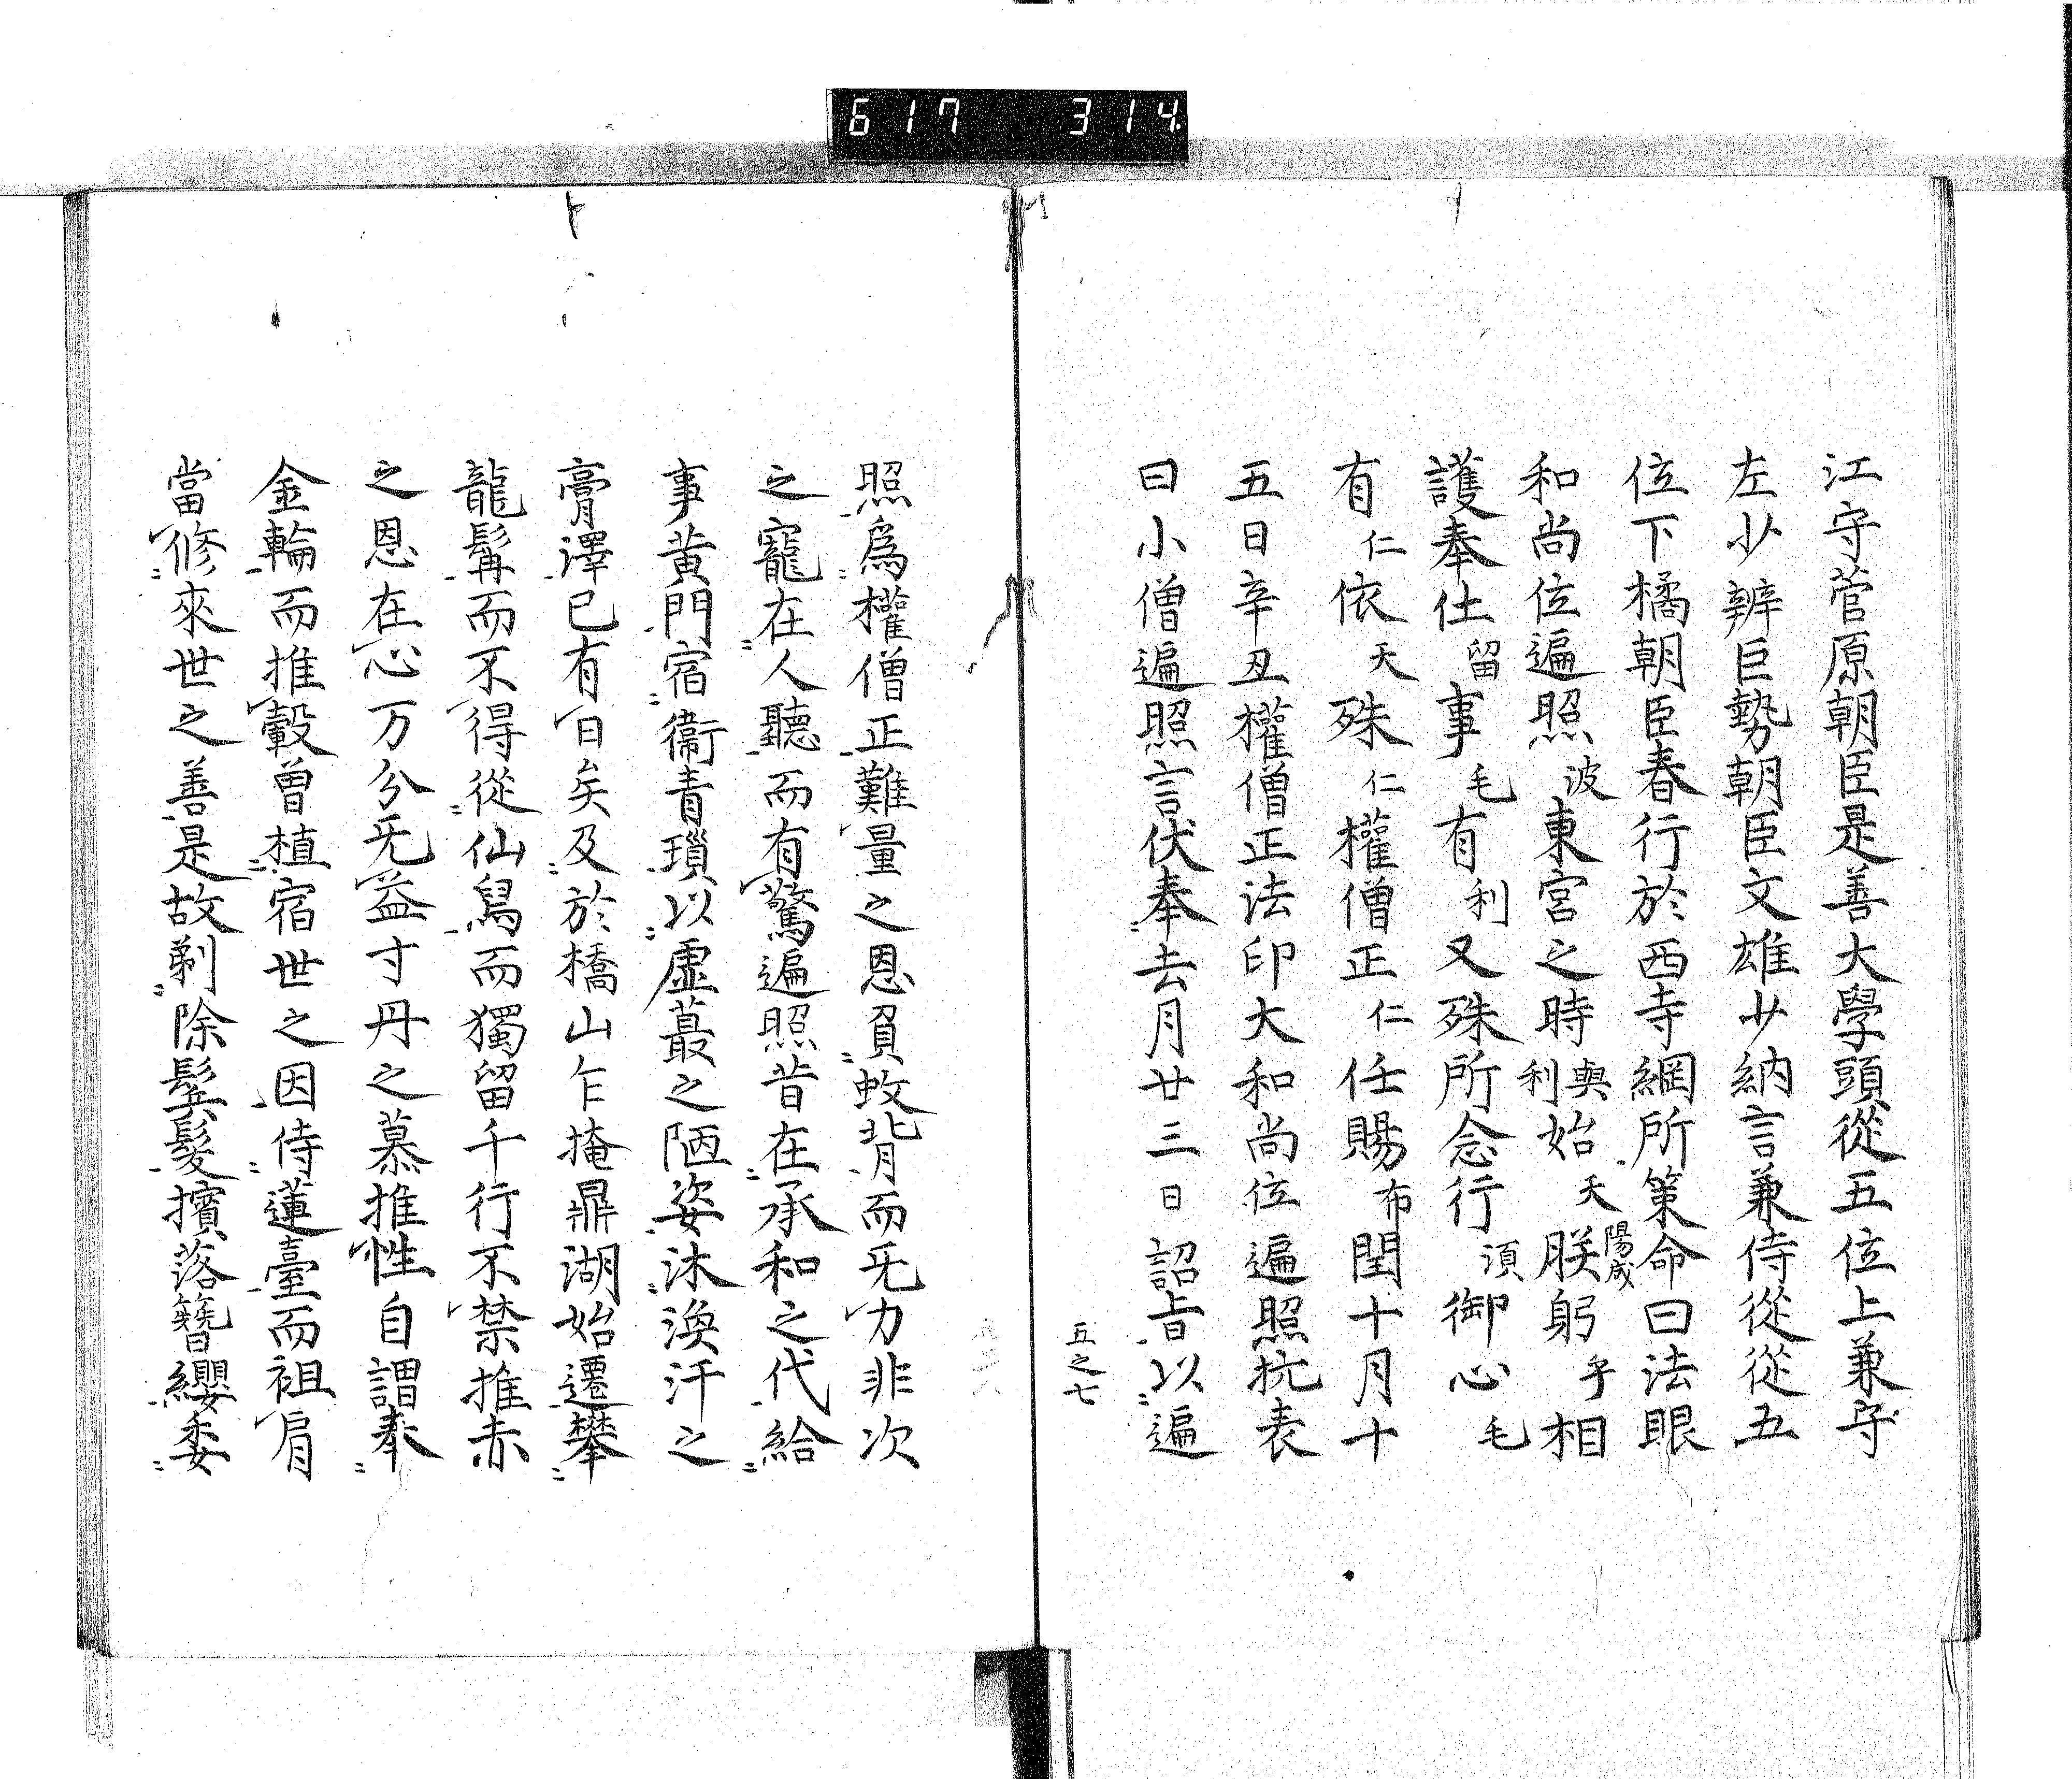 617 314
江守菅原朝臣是善大學頭從五位上兼守
左少辨巨勢朝臣文雄少納言兼侍從從五
位下橘朝臣春行於西寺綱所策命曰法眼
和尚位遍照波東宮之時與利始天朕陽成躬乎相
護奉仕留事毛有利又殊所念行湏御心毛
有仁依天殊仁權僧正仁任賜布閏十月十
五日辛丑權僧正法印大和尚位遍照抗表
曰小僧遍照言伏奉去月廿三日詔旨以遍
五之七
照爲權僧正難量之恩負蚊背而无力非次
之寵在人聽而有驚遍照昔在承和之代給
事黄門宿衞青瑣以虛蕞之陋姿沐渙汗之
膏澤已有日矣及於橋山乍掩鼎湖始遷攀
龍髯而不得從仙舄而獨留千行不禁推赤
之恩在心万分无益寸丹之慕推性自謂奉
金輪而推轂曾植宿世之因侍蓮臺而袒肩
當修來世之善是故剃除鬚髮擯落簪纓委